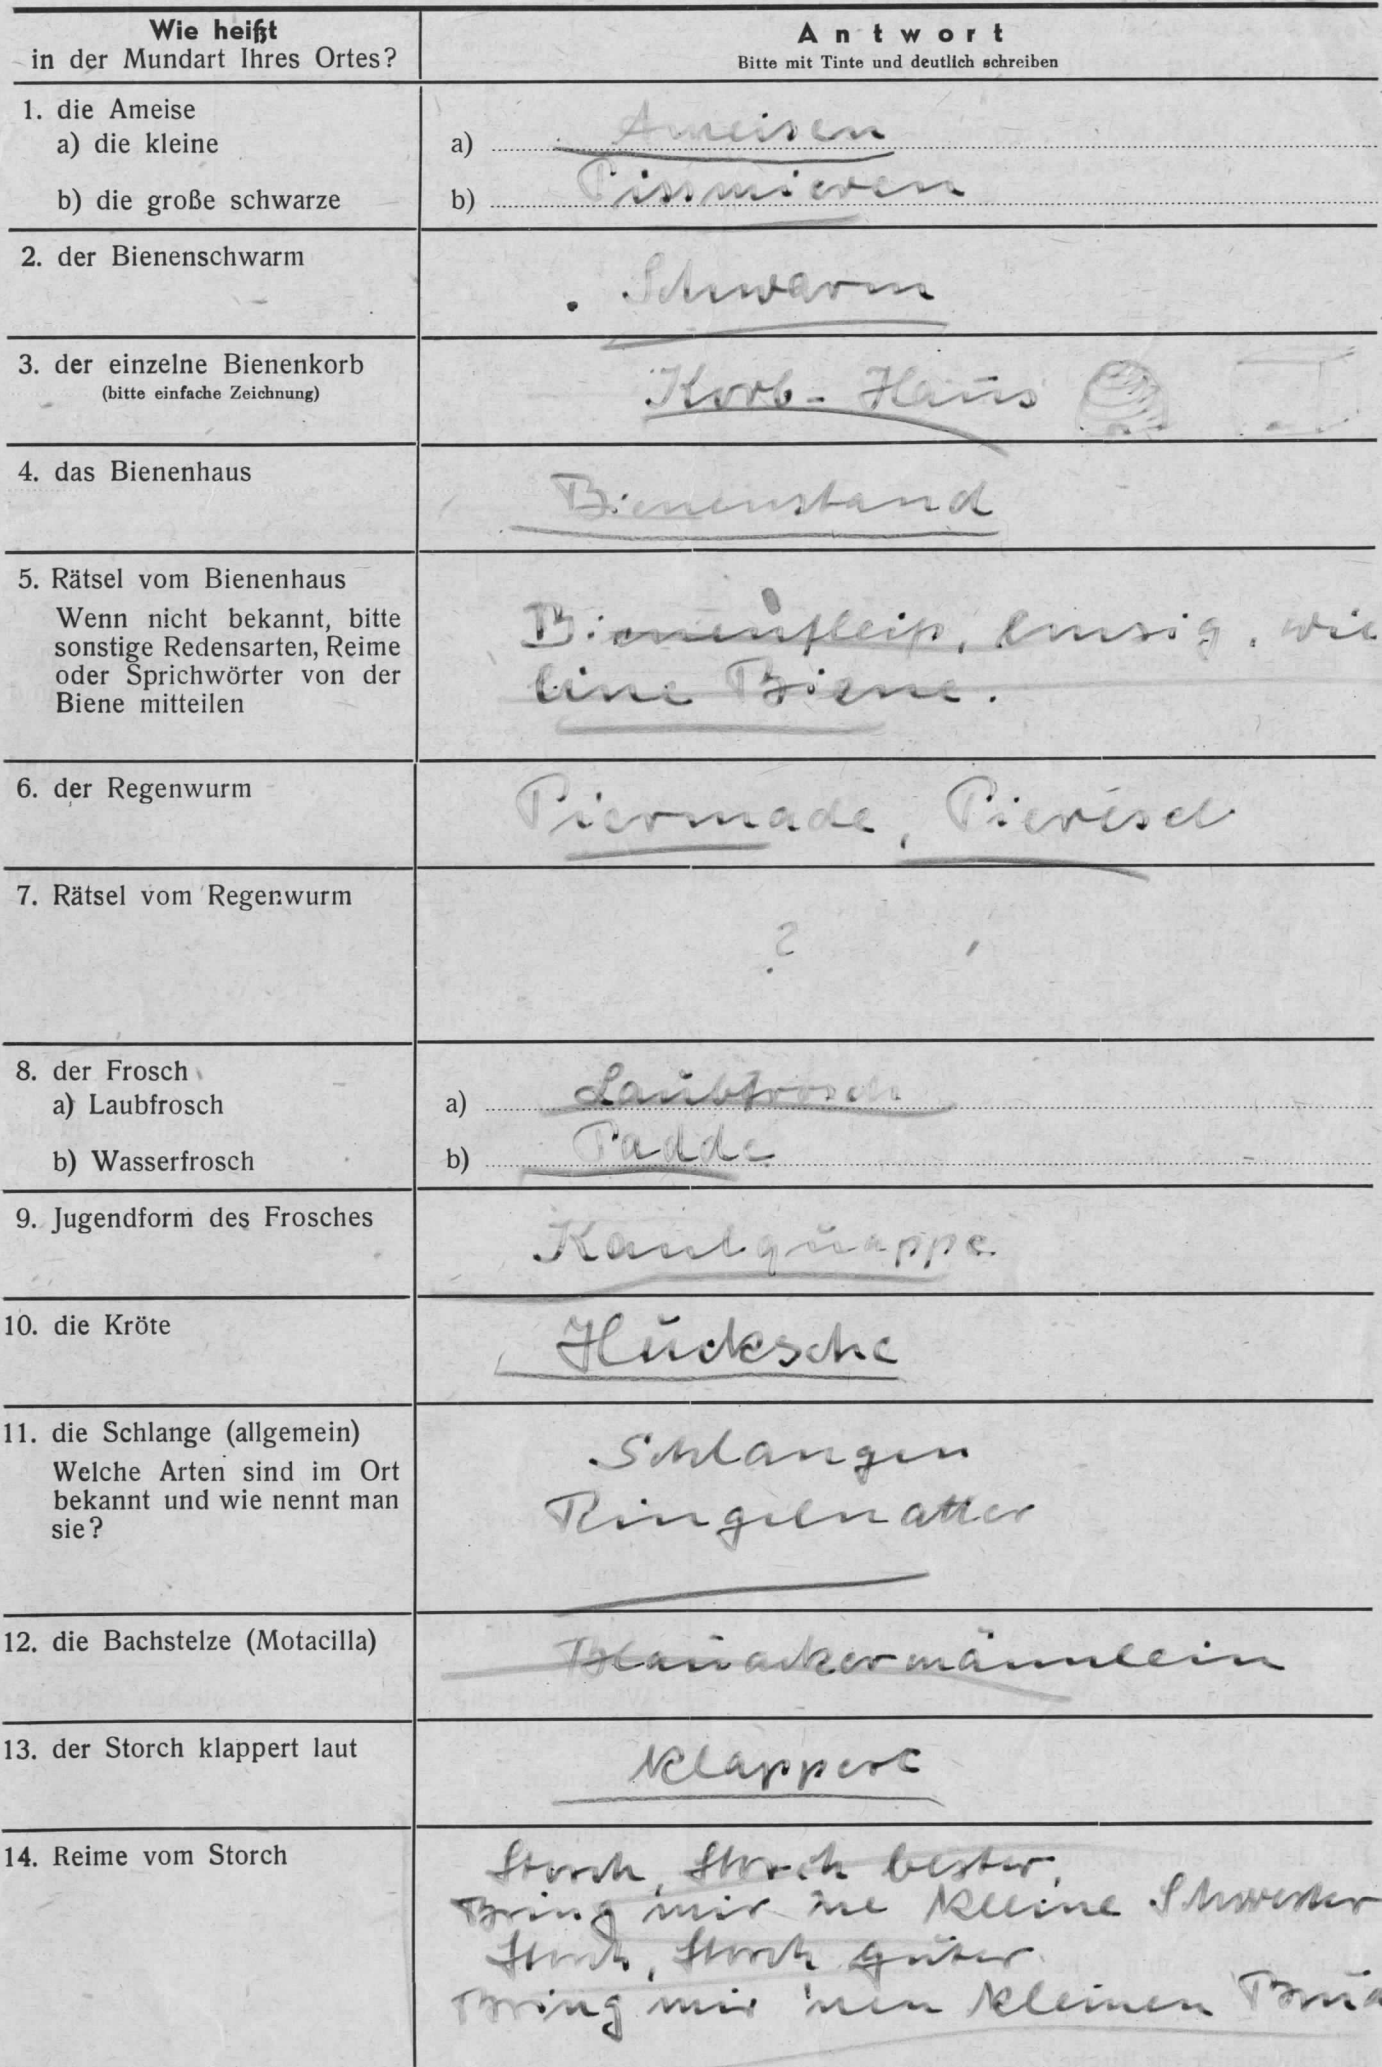 Wie heißt
in der Mundart Ihres Ortes?
Antwort
Bitte mit Tinte und deutlich schreiben
1. die Ameise
a) die kleine
a) Ameisen
b) die große schwarze
b) Pissmieren
2. der Bienenschwarm
Schwarm
3. der einzelne Bienenkorb
(bitte einfache Zeichnung)
Korb - Haus
4. das Bienenhaus
Bienenstand
5. Rätsel vom Bienenhaus
Wenn nicht bekannt, bitte
sonstige Redensarten, Reime
oder Sprichwörter von der
Biene mitteilen
Bienenfleiß, emsig, wie
eine Biene.
6. der Regenwurm
Piermade, Pieresel
7. Rätsel vom Regenwurm
?
8. der Frosch
a) Laubfrosch
a) Laubfrosch
b) Wasserfrosch
b) Padde
9. Jugendform des Frosches
Kaulquappe
10. die Kröte
Hucksche
11. die Schlange (allgemein)
Welche Arten sind im Ort
bekannt und wie nennt man
sie?
Schlangen
Ringelnatter
12. die Bachstelze (Motacilla)
Blauackermännlein
13. der Storch klappert laut
klappert
14. Reime vom Storch
Storch, Storch bester,
Bring mir ne kleine Schwester
Storch, Storch guter
Bring mir 'nen kleinen